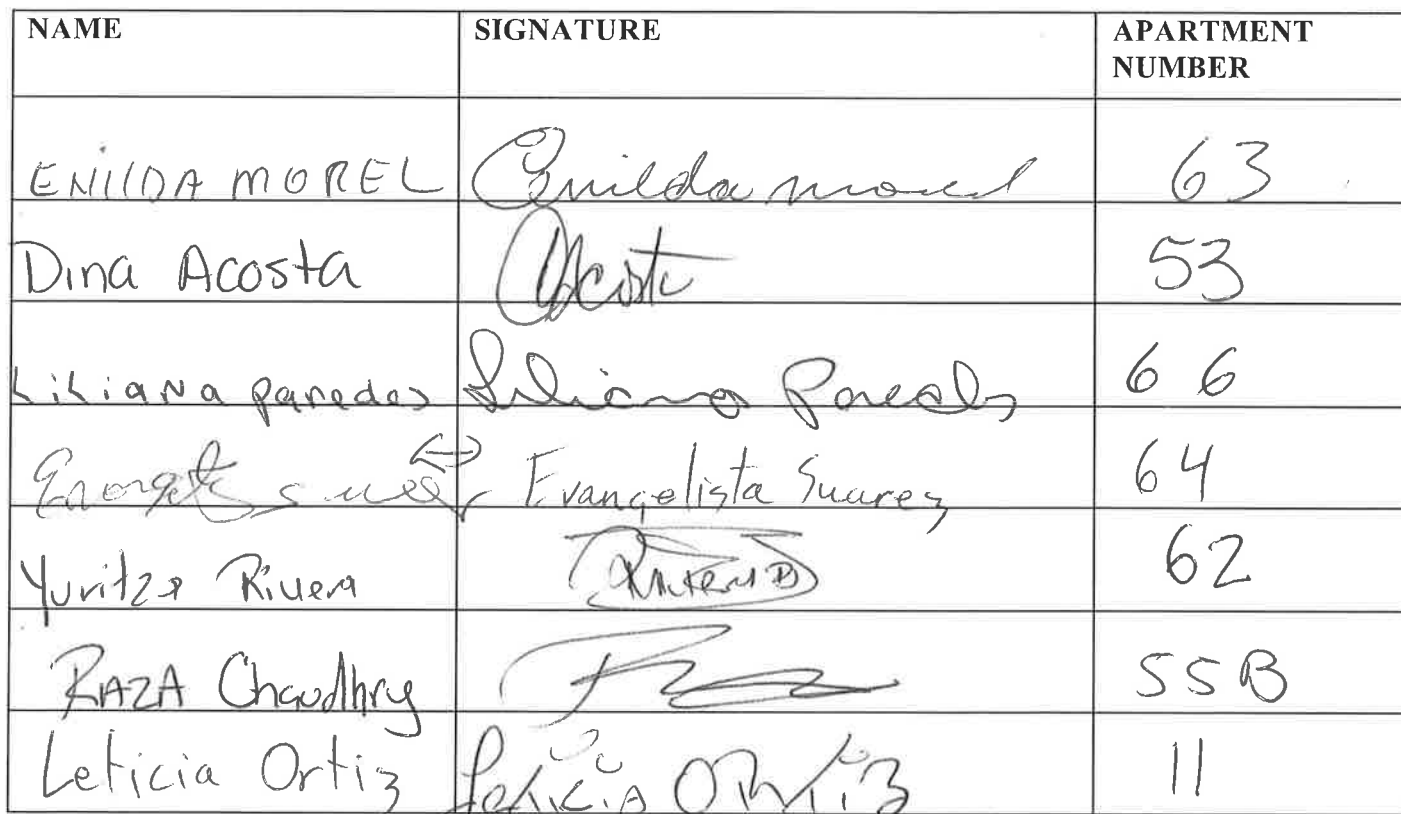 NAME SIGNATURE APARTMENT NUMBER
ENILDA MOREL Enilda morel 63
Dina Acosta Acosta 53
Liliana paredes Liliana Paredes 66
Evangelista Suarez 64
Yuritza Rivera 62
RAZA Chaudhry 55B
Leticia Ortiz Leticia ORtiz 11